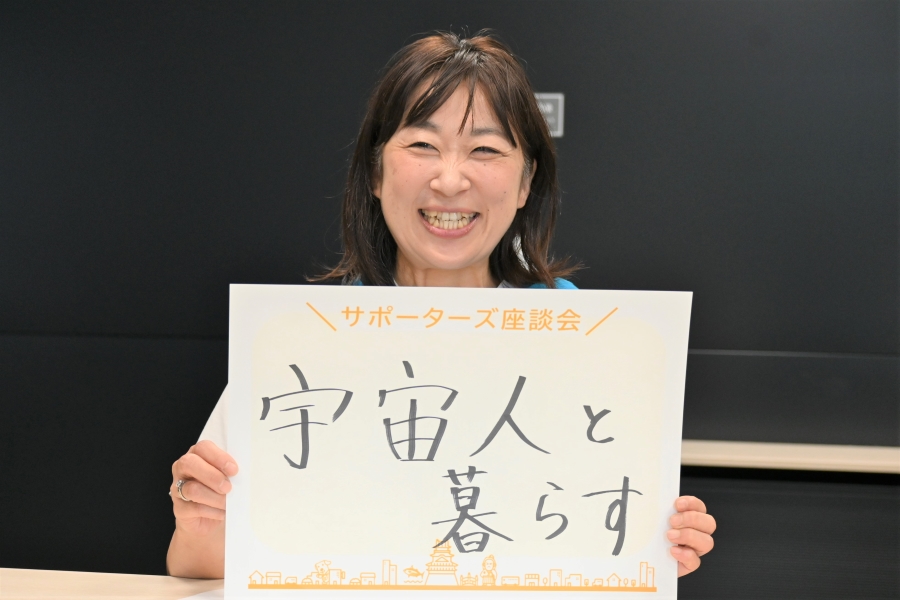 サポーターズ座談会
宇宙人と
暮らす